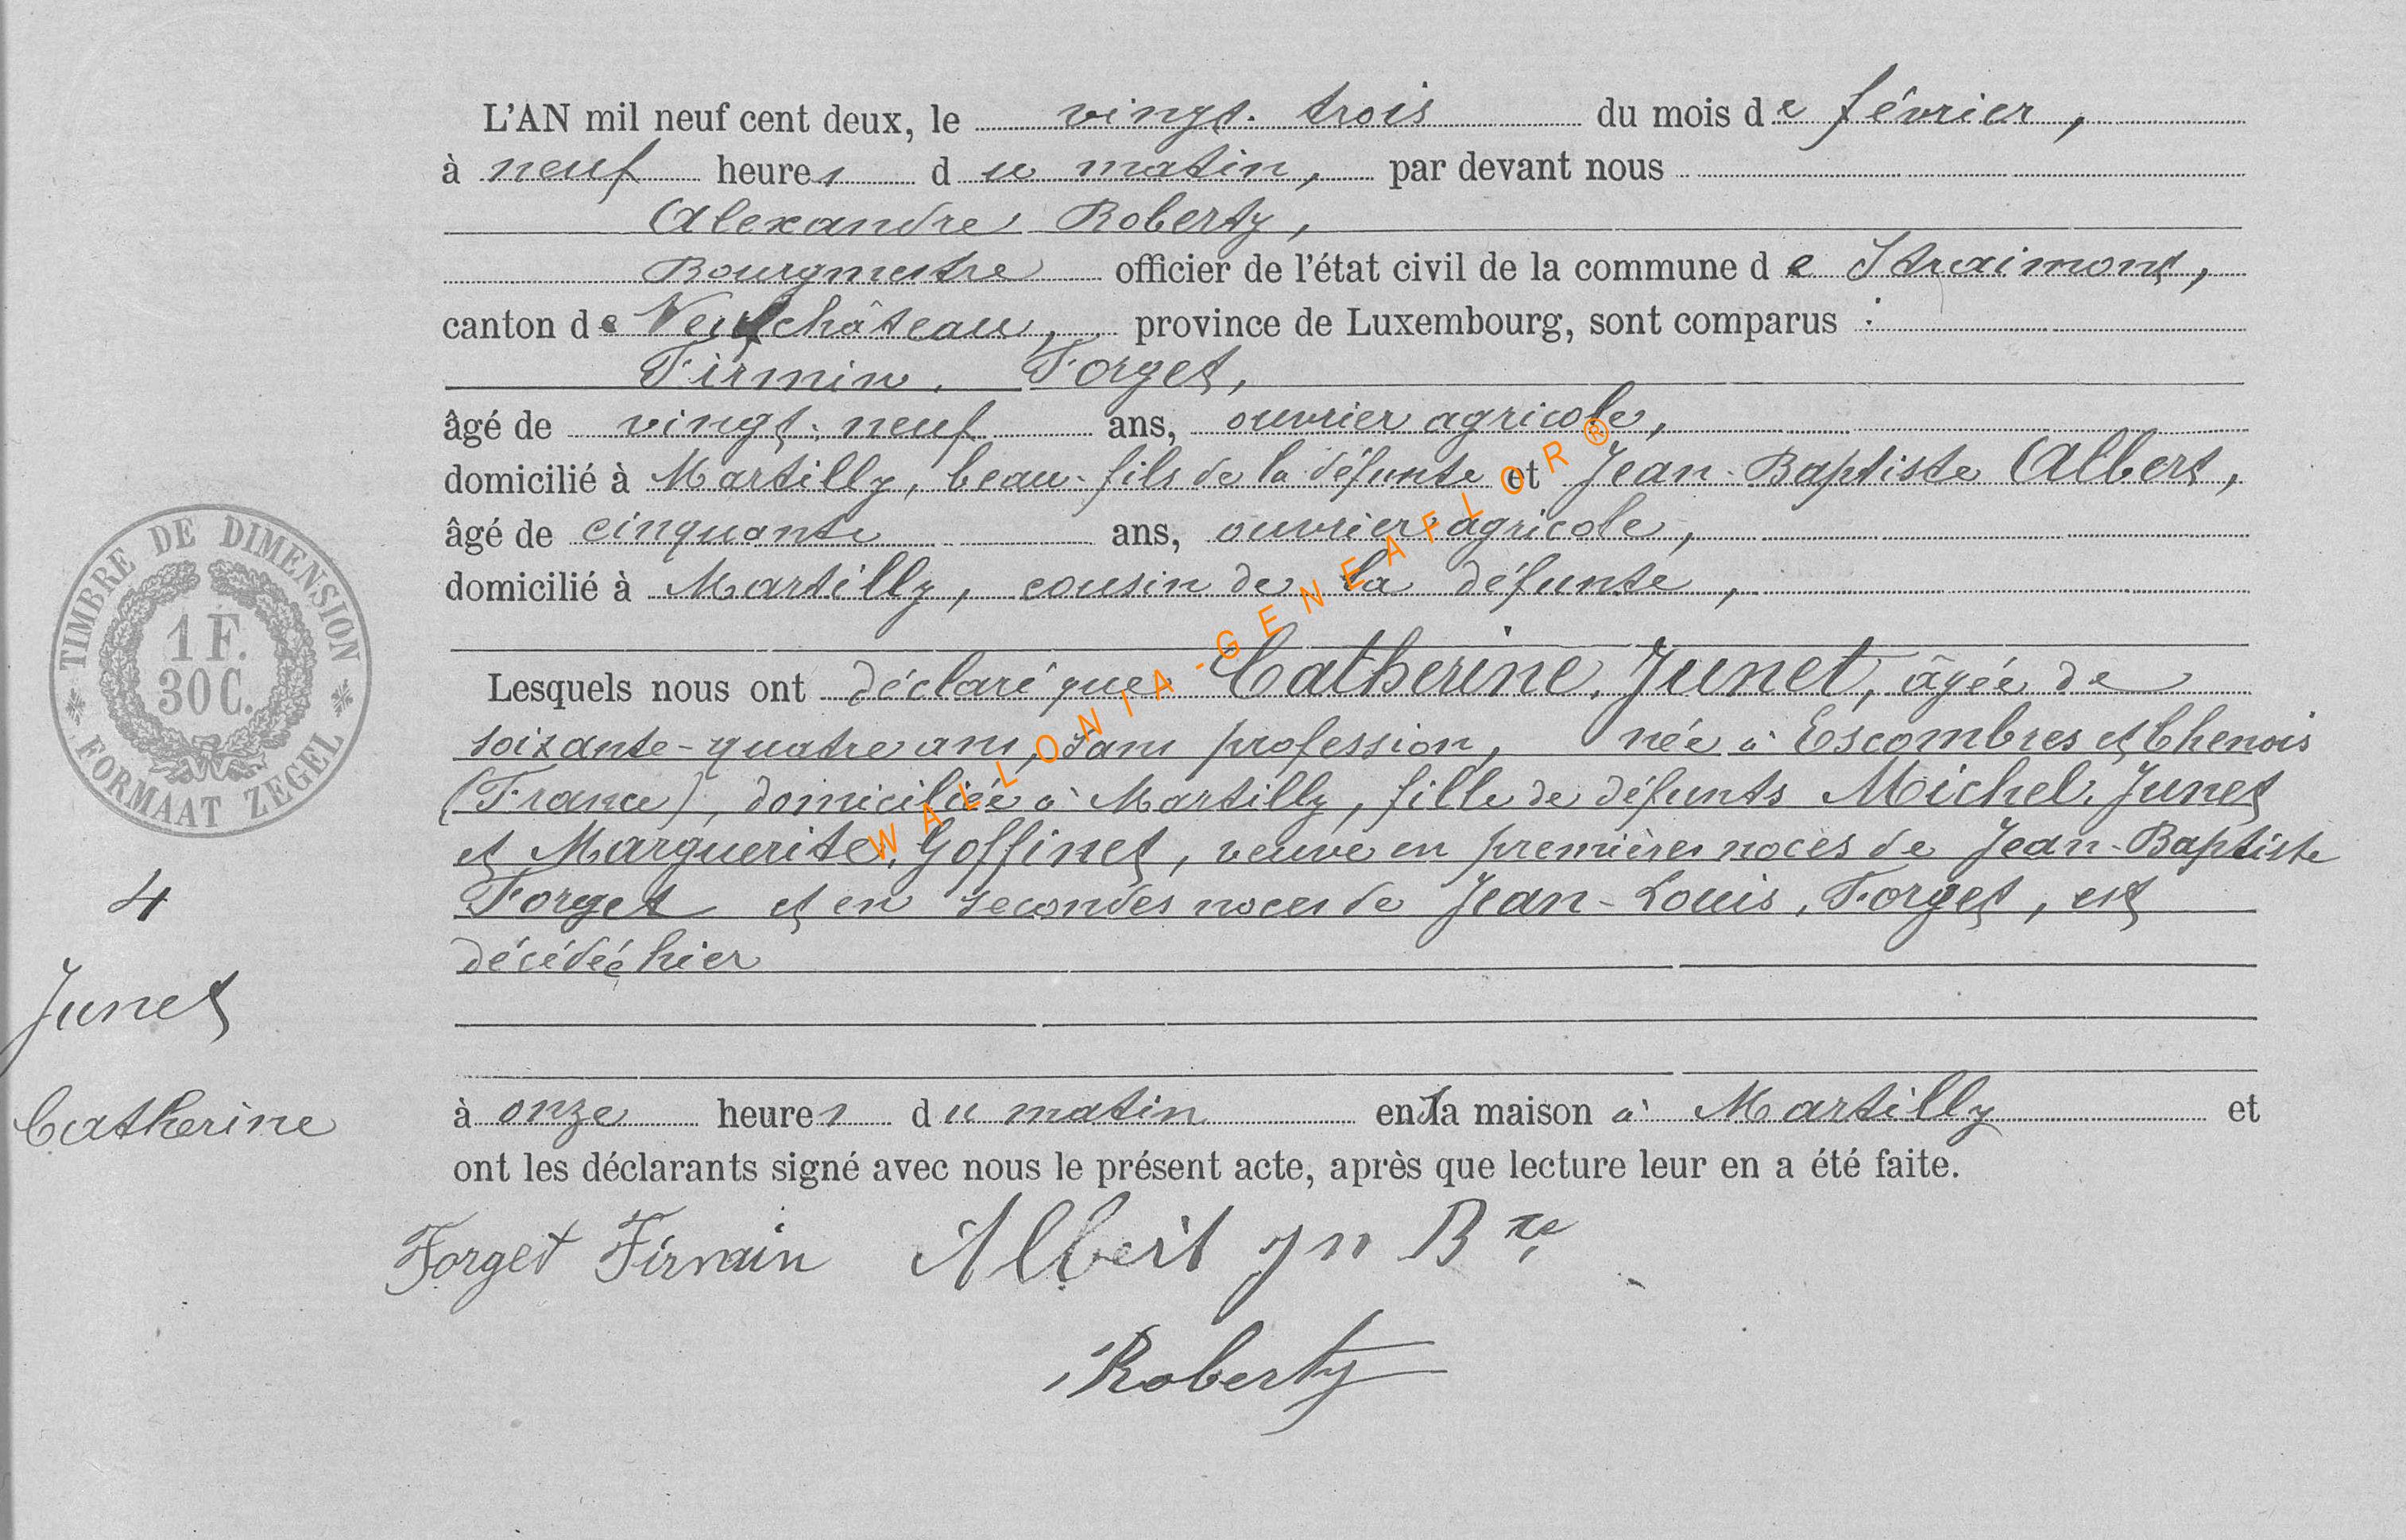 L'AN mil neuf cent deux, le vingt-trois du mois de février,
à neuf heures du matin, par devant nous
Alexandre Roberty,
Bourgmestre officier de l'état civil de la commune de Straimont,
canton de Neufchâteau, province de Luxembourg, sont comparus :
Firmin, Forget,
âgé de vingt-neuf ans, ouvrier agricole,
domicilié à Martilly, beau-fils de la défunte et Jean-Baptiste Albert,
âgé de cinquante ans, ouvrier agricole,
domicilié à Martilly, cousin de la défunte,
Lesquels nous ont déclaré que Catherine, Junet, âgée de
soixante-quatre ans, sans profession, née à Escombres et Chenois
(France), domiciliée à Martilly, fille de défunts Michel, Junet
et Marguerite, Goffinet, veuve en premières noces de Jean-Baptiste
Forget et en secondes noces de Jean-Louis, Forget, est
décédée hier
à onze heures du matin en sa maison à Martilly et
ont les déclarants signé avec nous le présent acte, après que lecture leur en a été faite.
Forget Firmin Albert Jn Bte
Roberty
TIMBRE DE DIMENSION
1 F.
30 C.
FORMAAT ZEGEL
4
Junet
Catherine
WALLONIA-GENEAFLOR®